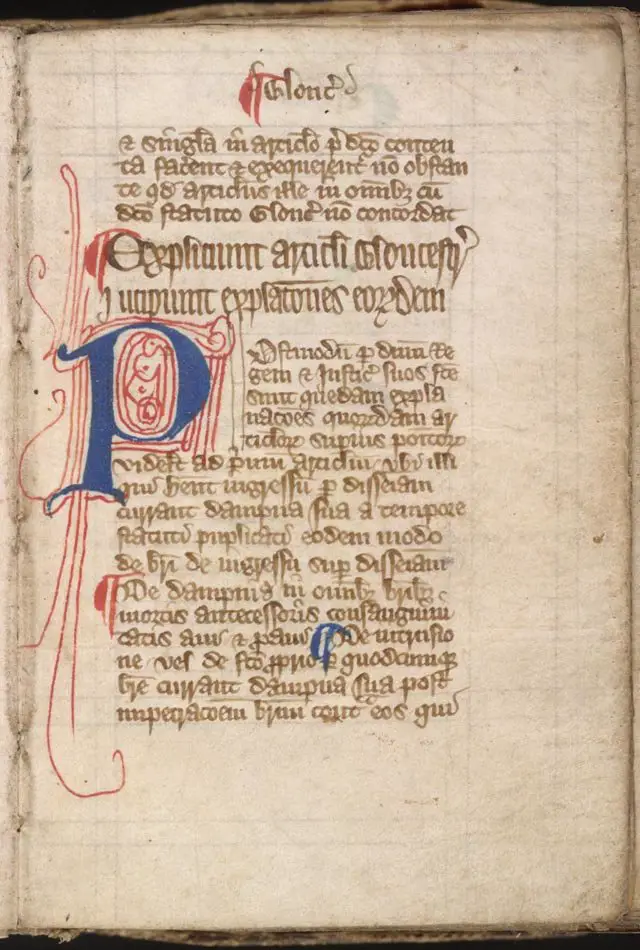 ¶ Glouc̄
⁊ singl̄a in articl̄o p̄dc̄o conten
ta facent ⁊ exequerent̄ nō obstan
te qd̄ articl̄us ille in om̄ibꝫ cū
dc̄o statuto Glouc̄ nō concordat
Expliciunt articl̄i Gloucestr̄
Incipiunt explac̄ones eoꝝdem
Postmodū p̄ dn̄um Re
gem ⁊ Justic̄ suos fc̄e
sunt quedam expla
nac̄oes quorūdam ar
ticl̄oꝝ supius poitoꝝ
videlt̄ ad p̄mum articl̄m vbi illi
qui hēnt ingressū ꝑ disseiam
currant dampna sua a tempore
statuti puplicati eodem modo
de br̄i de ingressu suꝑ disseiam̄
¶ De dampnis in om̄ibꝫ br̄ibꝫ
mortis antecessoris consanguini
tatis aui ⁊ ꝓaui ¶ De intrusio
ne vel de fc̄o ꝓprio ꝑ quodcumqꝫ
br̄e currant dampna sua post
impetrac̄oem br̄ium cont̄ eos qui